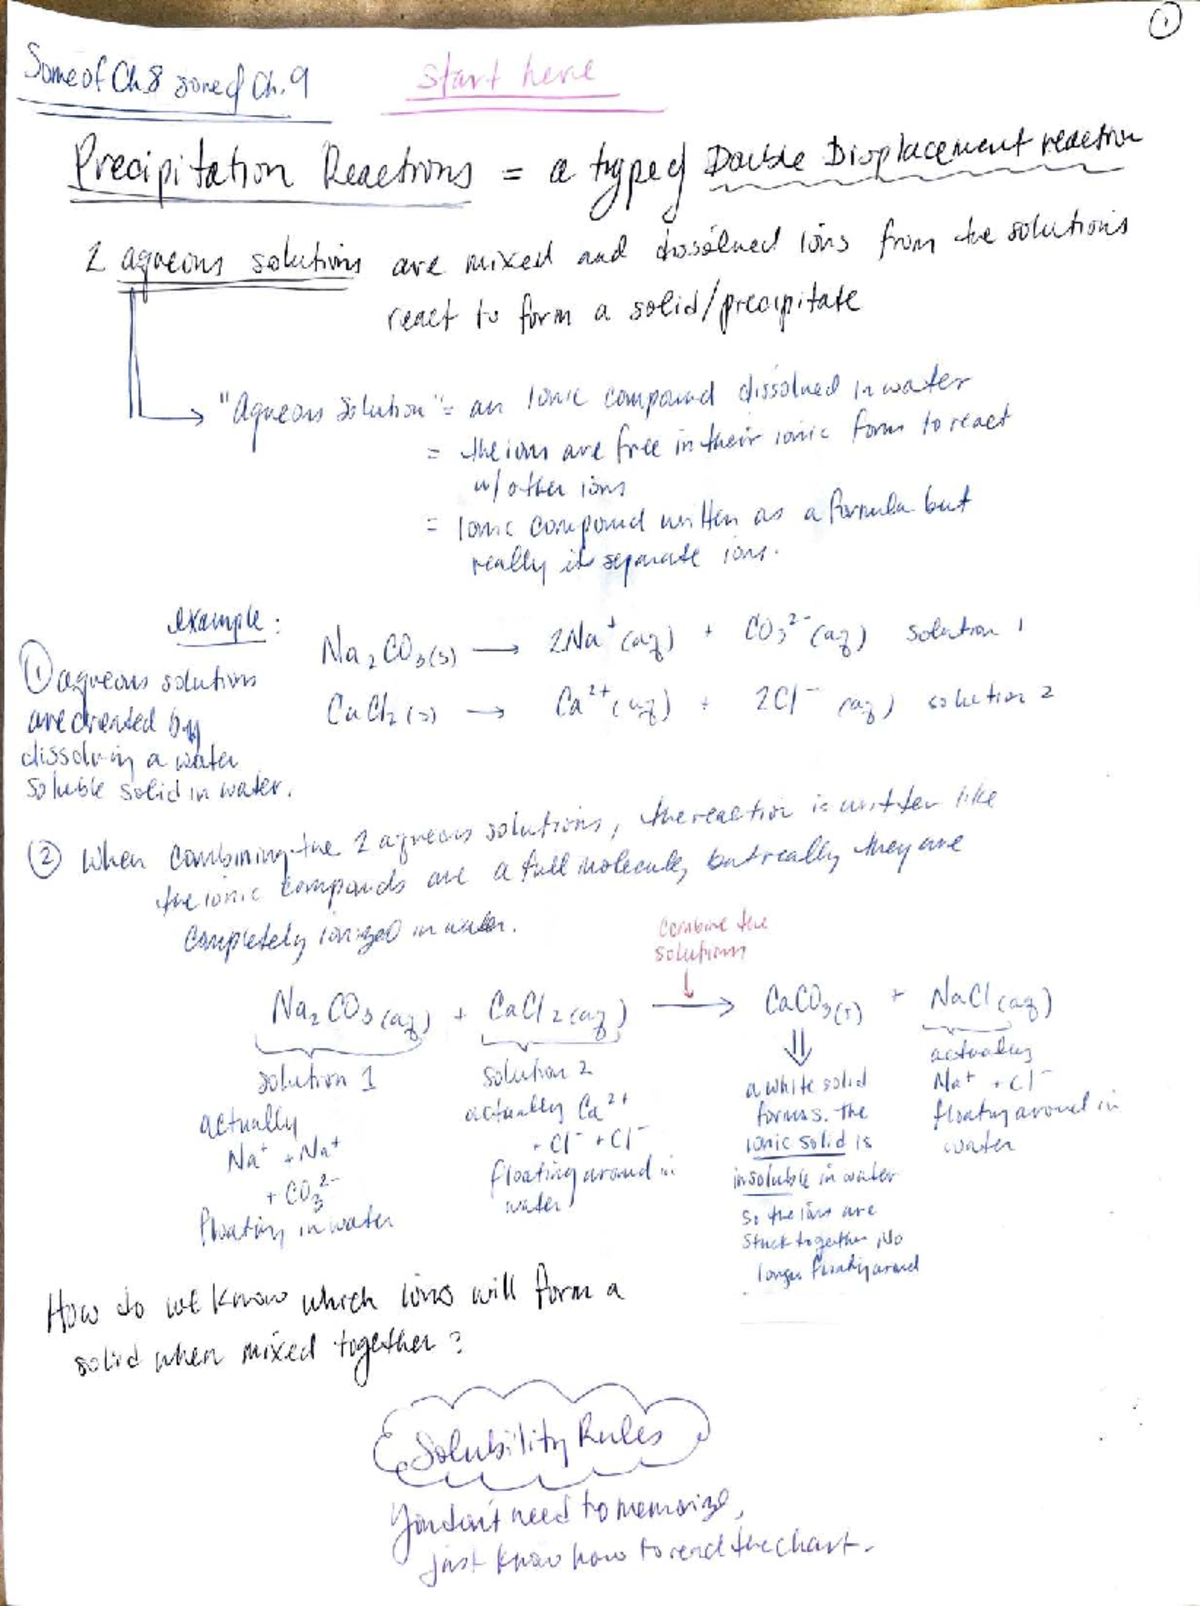 1
Some of Ch.8 some of Ch.9
Start here
Precipitation Reactions = a type of Double Displacement reaction
2 aqueous solutions are mixed and dissolved ions from the solutions
react to form a solid/precipitate
"Aqueous Solution" = an Ionic compound dissolved in water
= the ions are free in their ionic form to react
w/ other ions
= Ionic compound written as a formula but
really is separate ions.
example:
① aqueous solutions
are created by
dissolving a water
soluble solid in water.
Na₂CO₃(s) → 2Na⁺(aq) + CO₃²⁻(aq) solution 1
CaCl₂(s) → Ca²⁺(aq) + 2Cl⁻(aq) solution 2
② When combining the 2 aqueous solutions, the reaction is written like
the ionic compounds are a full molecule, but really they are
completely ionized in water.
combine the
solutions
Na₂CO₃(aq) + CaCl₂(aq) → CaCO₃(s) + NaCl(aq)
solution 1
actually
Na⁺ + Na⁺
+ CO₃²⁻
floating in water
solution 2
actually Ca²⁺
+ Cl⁻ + Cl⁻
floating around in
water
a white solid
forms. The
ionic solid is
insoluble in water
so the ions are
stuck together no
longer floating around
actually
Na⁺ + Cl⁻
floating around in
water
How do we know which ions will form a
solid when mixed together?
Solubility Rules
You don't need to memorize,
just know how to read the chart.